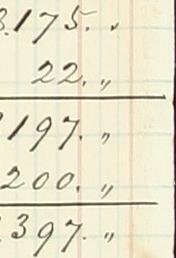 3.175. "
22. "
197. "
200. "
397. "